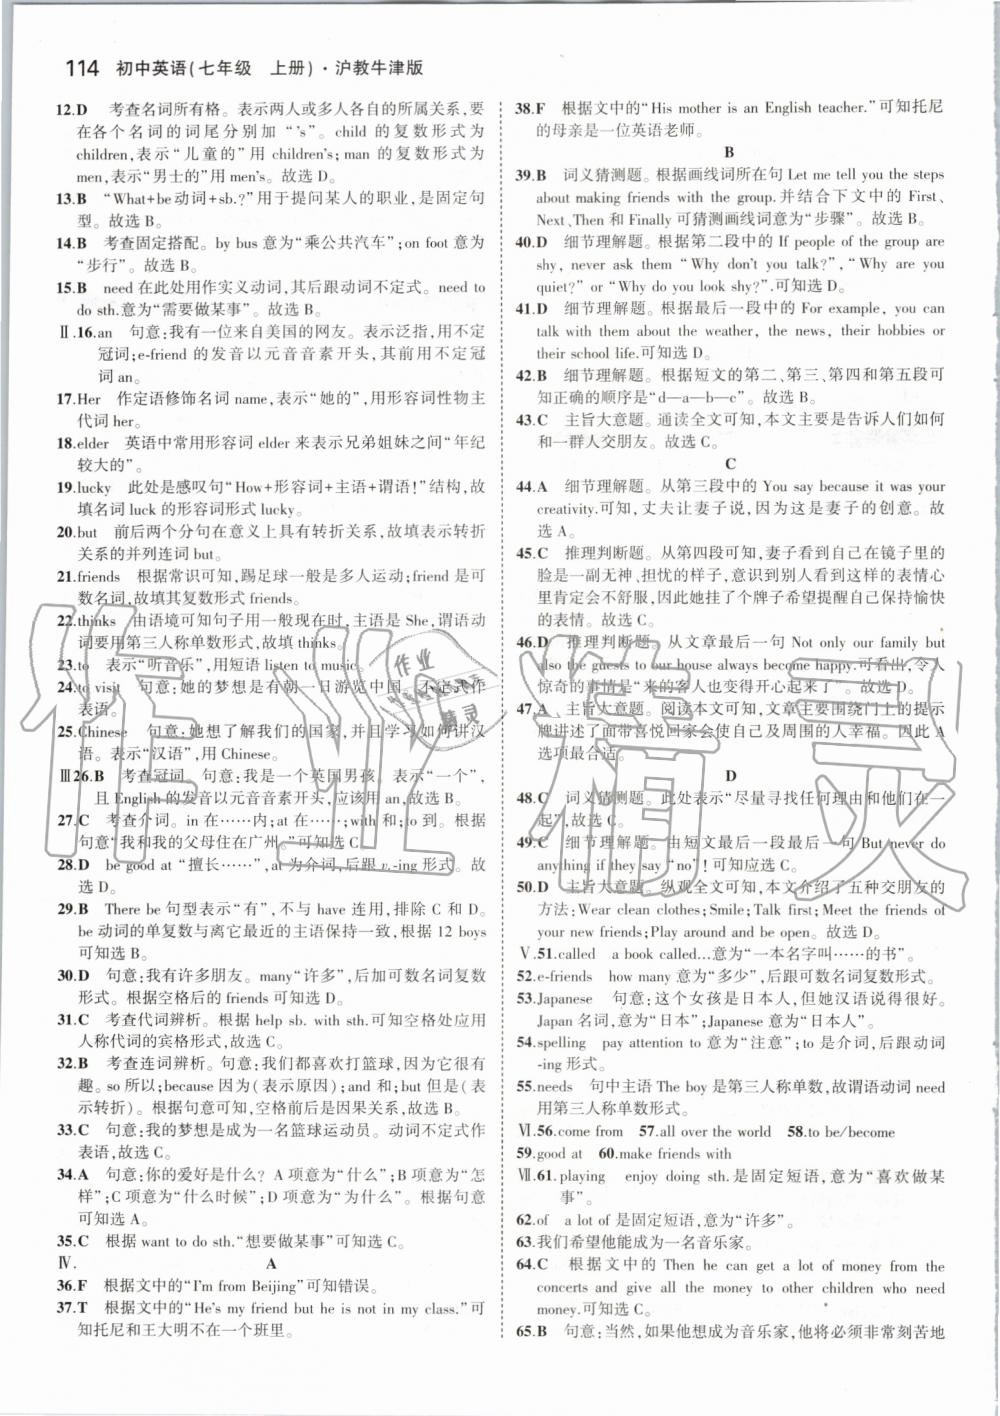 114 初中英语(七年级 上册)·沪教牛津版
12.D 考查名词所有格。表示两人或多人各自的所属关系,要
在各个名词的词尾分别加“'s”。child 的复数形式为
children,表示“儿童的”用 children's; man 的复数形式为
men,表示“男士的”用 men's。故选 D。
13.B “What+be动词+sb.?”用于提问某人的职业,是固定句
型。故选 B。
14.B 考查固定搭配。by bus 意为“乘公共汽车”;on foot 意为
“步行”。故选 B。
15.B need 在此处用作实义动词,其后跟动词不定式。need to
do sth.意为“需要做某事”。故选 B。
Ⅱ.16.an 句意:我有一位来自美国的网友。表示泛指,用不定
冠词;e-friend 的发音以元音音素开头,其前用不定冠
词 an。
17.Her 作定语修饰名词 name,表示“她的”,用形容词性物主
代词 her。
18.elder 英语中常用形容词 elder 来表示兄弟姐妹之间“年纪
较大的”。
19.lucky 此处是感叹句“How+形容词+主语+谓语!”结构,故
填名词 luck 的形容词形式 lucky。
20.but 前后两个分句在意义上具有转折关系,故填表示转折
关系的并列连词 but。
21.friends 根据常识可知,踢足球一般是多人运动;friend 是可
数名词,故填其复数形式 friends。
22.thinks 由语境可知句子用一般现在时,主语是 She,谓语动
词要用第三人称单数形式,故填 thinks。
23.to 表示“听音乐”,用短语 listen to music。
24.to visit 句意:她的梦想是有朝一日游览中国。不定式作
表语。
25.Chinese 句意:她想了解我们的国家,并且学习如何讲汉
语。表示“汉语”,用 Chinese。
Ⅲ26.B 考查冠词。句意:我是一个英国男孩。表示“一个”,
且 English 的发音以元音音素开头,应该用 an,故选 B。
27.C 考查介词。in 在……内;at 在……;with 和;to 到。根据
句意“我和我的父母住在广州。”可知选 C。
28.D be good at “擅长……”,at 为介词,后跟 v.-ing 形式。故
选 D。
29.B There be 句型表示“有”,不与 have 连用,排除 C 和 D。
be 动词的单复数与离它最近的主语保持一致,根据 12 boys
可知选 B。
30.D 句意:我有许多朋友。many“许多”,后加可数名词复数
形式。根据空格后的 friends 可知选 D。
31.C 考查代词辨析。根据 help sb. with sth.可知空格处应用
人称代词的宾格形式,故选 C。
32.B 考查连词辨析。句意:我们都喜欢打篮球,因为它很有
趣。so 所以;because 因为(表示原因);and 和;but 但是(表
示转折)。根据句意可知,空格前后是因果关系。故选 B。
33.C 句意:我的梦想是成为一名篮球运动员。动词不定式作
表语,故选 C。
34.A 句意:你的爱好是什么? A 项意为“什么”;B 项意为“怎
样”;C 项意为“什么时候”;D 项意为“为什么”。根据句意
可知选 A。
35.C 根据 want to do sth.“想要做某事”可知选 C。
Ⅳ. A
36.F 根据文中的“I'm from Beijing”可知错误。
37.T 根据文中的“He's my friend but he is not in my class.”可
知托尼和王大明不在一个班里。
38.F 根据文中的“His mother is an English teacher.”可知托尼
的母亲是一位英语老师。
B
39.B 词义猜测题。根据画线词所在句 Let me tell you the steps
about making friends with the group.并结合下文中的 First、
Next、Then 和 Finally 可猜测画线词意为“步骤”。故选 B。
40.D 细节理解题。根据第二段中的 If people of the group are
shy, never ask them “Why don't you talk?”, “Why are you
quiet?” or “Why do you look shy?”.可知选 D。
41.D 细节理解题。根据最后一段中的 For example, you can
talk with them about the weather, the news, their hobbies or
their school life.可知选 D。
42.B 细节理解题。根据短文的第二、第三、第四和第五段可
知正确的顺序是“d—a—b—c”。故选 B。
43.C 主旨大意题。通读全文可知,本文主要是告诉人们如何
和一群人交朋友。故选 C。
C
44.A 细节理解题。从第三段中的 You say because it was your
creativity.可知,丈夫让妻子说,因为这是妻子的创意。故
选 A。
45.C 推理判断题。从第四段可知,妻子发现自己在镜子里的
脸是一副无神、担忧的样子,意识到自己这样的表情心
里肯定会不舒服,因此她挂了个牌子希望提醒自己保持愉快
的表情。故选 C。
46.D 推理判断题。从文章最后一句 Not only our family but
also the guests to our house always become happy.可看出,令人
惊奇的事情是“来的客人也变得开心起来了”。故选 D。
47.A 主旨大意题。阅读本文可知,文章主要围绕门上的提示
牌讲述了面带喜悦回家会使自己及周围的人幸福。因此 A
选项最合适。
D
48.C 词义猜测题。此处表示“尽量寻找任何理由和他们在一
起”,故选 C。
49.C 细节理解题。由短文最后一段最后一句 But never do
anything if they say “no”! 可知应选 C。
50.D 主旨大意题。纵观全文可知,本文介绍了五种交朋友的
方法:Wear clean clothes;Smile;Talk first;Meet the friends of
your new friends;Play around and be open.故选 D。
Ⅴ.51.called a book called...意为“一本名字叫……的书”。
52.e-friends how many 意为“多少”,后跟可数名词复数形式。
53.Japanese 句意:这个女孩是日本人,但她汉语说得很好。
Japan 名词,意为“日本”;Japanese 意为“日本人”。
54.spelling pay attention to 意为“注意”;to 是介词,后跟动词
-ing 形式。
55.needs 句中主语 The boy 是第三人称单数,故谓语动词 need
用第三人称单数形式。
Ⅵ.56.come from 57.all over the world 58.to be/become
59.good at 60.make friends with
Ⅶ.61.playing enjoy doing sth.是固定短语,意为“喜欢做某
事”。
62.of a lot of 是固定短语,意为“许多”。
63.我们希望他能成为一名音乐家。
64.C 根据文中的 Then he can get a lot of money from the
concerts and give all the money to other children who need
money.可知选 C。
65.B 句意:当然,如果他想成为音乐家,他将必须非常刻苦地
作业精灵
作业
精灵